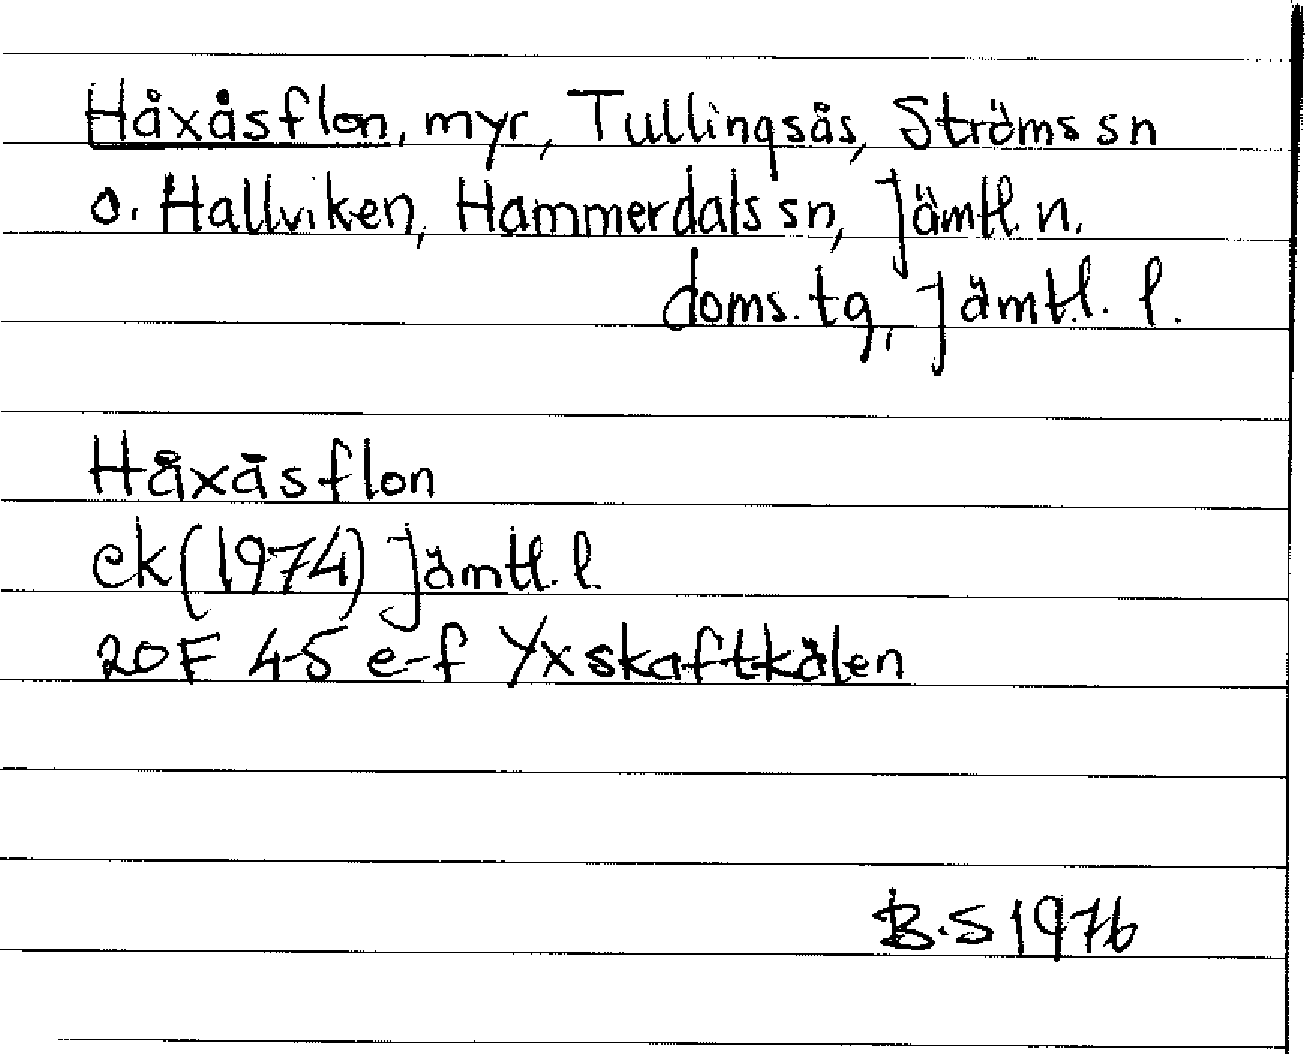 Håxåsflon, myr, Tullingsås, Ströms sn
o. Hallviken, Hammerdals sn, Jämtl. n.
doms. tg, Jämtl. l.
Håxåsflon
ek (1974) Jämtl. l.
20F 4-5 e-f Yxskaftkälen
B.S 1976